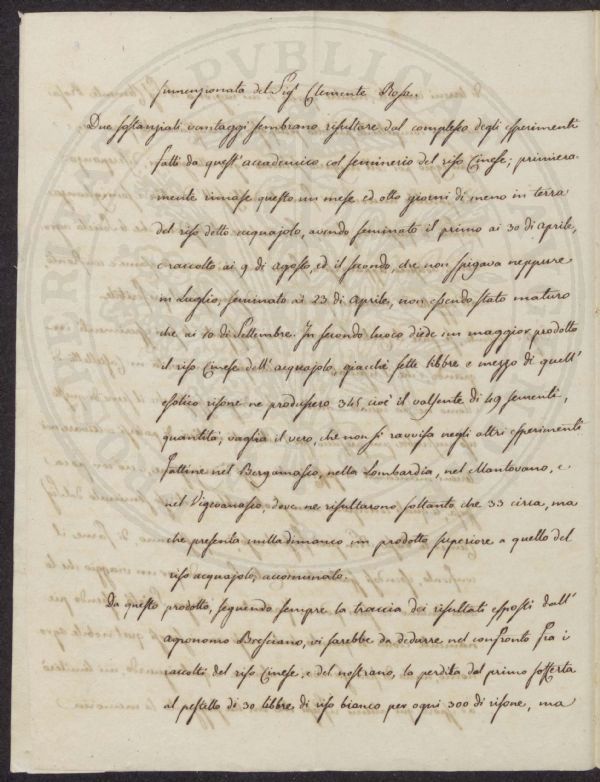 summenzionata del Sig.r Clemente Rosa.
Due sostanziali vantaggi sembrano risultare dal complesso degli esperimenti
fatti da quest'accademico col seminerio del riso Cinese; primiera-
mente rimase questo un mese ed otto giorni di meno in terra
del riso detto acquajolo, avendo seminato il primo ai 30 di Aprile,
e raccolto ai 9 di Agosto, ed il secondo, che non spigava neppure
in Luglio, seminato ai 23 di Aprile, non essendo stato maturo
che ai 10 di Settembre. In secondo luoco diede un maggior prodotto
il riso Cinese dell'acquajolo, giacchè sette libbre e mezzo di quell'
esotico risone ne produssero 345, cioè il valsente di 49 sementi,
quantità, vaglia il vero, che non si ravvisa negli altri esperimenti
fattine nel Bergamasco, nella Lombardia, nel Mantovano, e
nel Vigevanasco, dove ne risultarono soltanto che 33 circa, ma
che presenta nulladimanco un prodotto superiore a quello del
riso acquajolo, accomunato.
Da questo prodotto, seguendo sempre la traccia dei risultati esposti dall'
agronomo Bresciano, vi sarebbe da dedurre nel confronto fra i
raccolti del riso Cinese, e del nostrano, la perdita dal primo sofferta
al pestello di 30 libbre, di riso bianco per ogni 300 di risone, ma